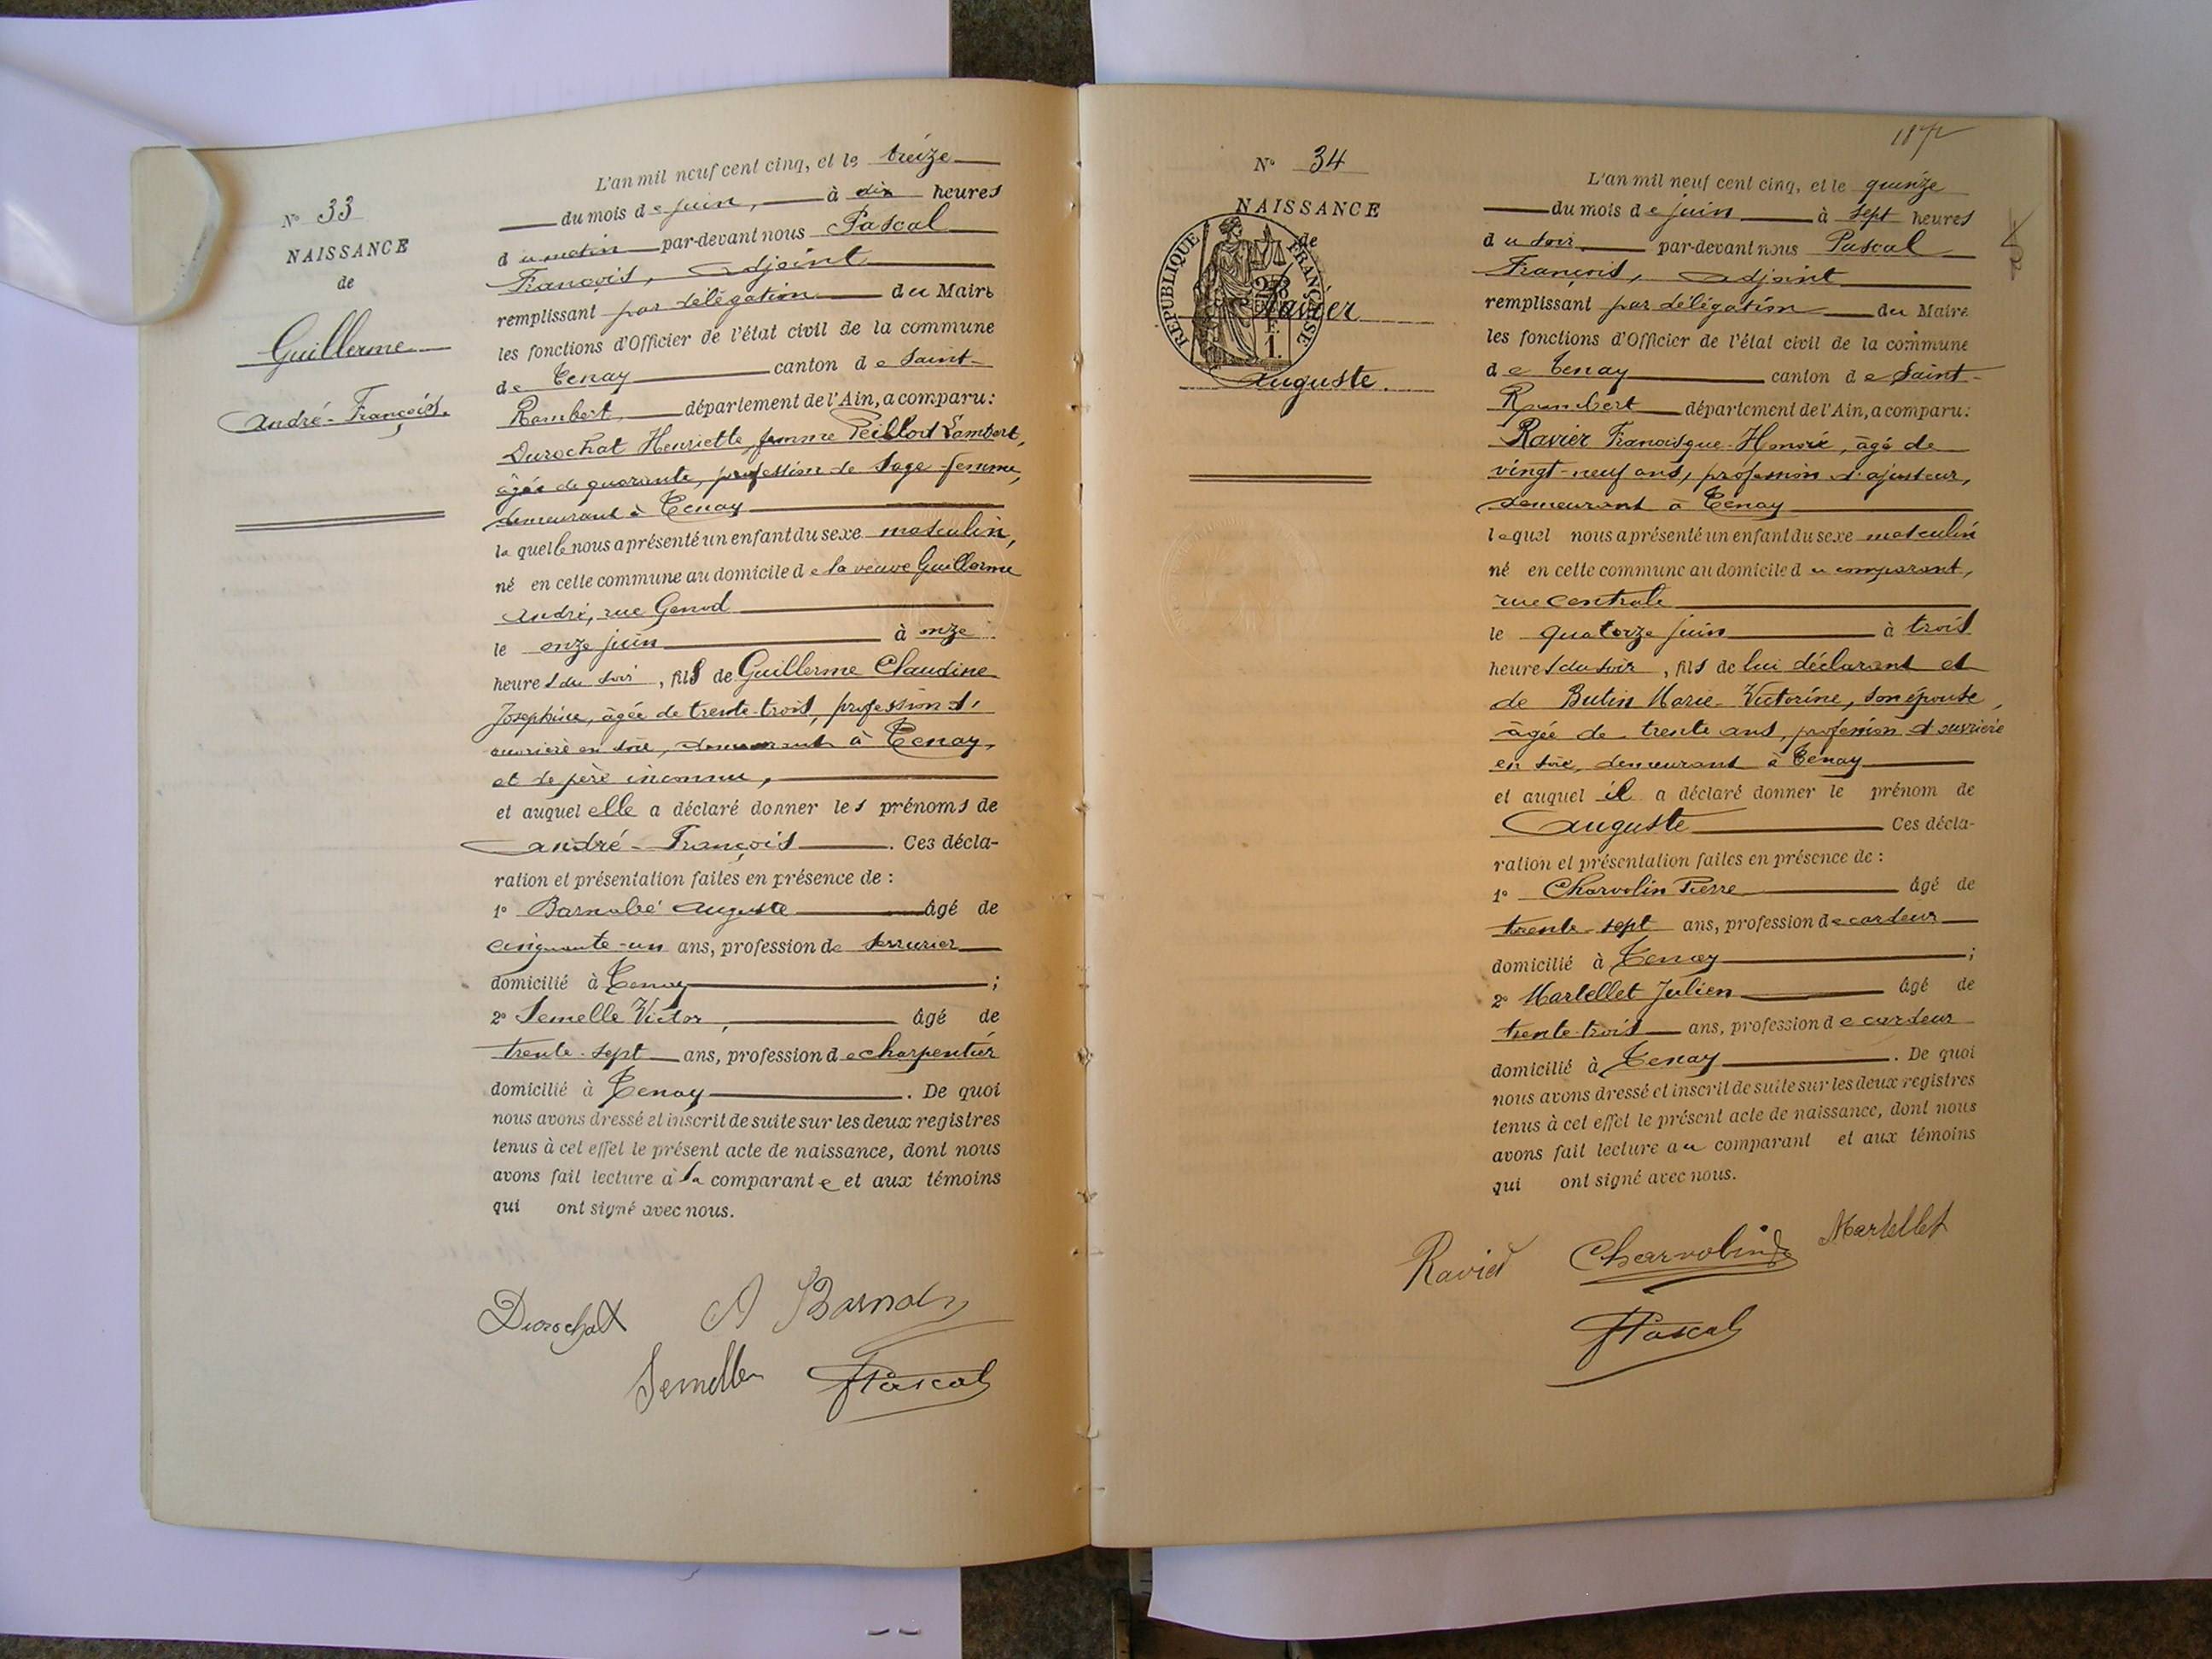 N° 33
NAISSANCE
de
Guillerme
André-François.
L'an mil neuf cent cinq, et le treize
du mois de juin, à dix heures
du matin par-devant nous Pascal
François, adjoint
remplissant par délégation du Maire
les fonctions d'Officier de l'état civil de la commune
de Tenay canton de Saint-
Rambert, département de l'Ain, a comparu :
Durochat Henriette, femme Peillod Lambert,
âgée de quarante, profession de sage-femme,
demeurant à Tenay
laquelle nous a présenté un enfant du sexe masculin,
né en cette commune au domicile de la veuve Guillerme
André, rue Genod
le onze juin à onze
heures du soir, fils de Guillerme Claudine
Josephine, âgée de trente-trois, profession d'
ouvrière en soie, demeurant à Tenay,
et de père inconnu,
et auquel elle a déclaré donner les prénoms de
André-François. Ces décla-
ration et présentation faites en présence de :
1° Barnabé Auguste âgé de
cinquante-un ans, profession de serrurier
domicilié à Tenay ;
2° Semelle Victor, âgé de
trente-sept ans, profession de charpentier
domicilié à Tenay. De quoi
nous avons dressé et inscrit de suite sur les deux registres
tenus à cet effet le présent acte de naissance, dont nous
avons fait lecture à la comparante et aux témoins
qui ont signé avec nous.
Durochat A Barnabé
Semelle FPascal
187
N° 34
NAISSANCE
de
RÉPUBLIQUE FRANÇAISE
Ravier
Auguste.
L'an mil neuf cent cinq, et le quinze
du mois de juin à sept heures
du soir par-devant nous Pascal
François, adjoint
remplissant par délégation du Maire
les fonctions d'Officier de l'état civil de la commune
de Tenay canton de Saint-
Rambert département de l'Ain, a comparu :
Ravier Francisque-Honoré, âgé de
vingt-neuf ans, profession d'ajusteur,
demeurant à Tenay
lequel nous a présenté un enfant du sexe masculin
né en cette commune au domicile du comparant,
rue Centrale
le quatorze juin à trois
heures du soir, fils de lui déclarant et
de Butin Marie-Victorine, son épouse,
âgée de trente ans, profession d'ouvrière
en soie, demeurant à Tenay
et auquel il a déclaré donner le prénom de
Auguste Ces décla-
ration et présentation faites en présence de :
1° Charvolin Pierre âgé de
trente-sept ans, profession de cardeur
domicilié à Tenay ;
2° Martellet Julien âgé de
trente-trois ans, profession de cardeur
domicilié à Tenay. De quoi
nous avons dressé et inscrit de suite sur les deux registres
tenus à cet effet le présent acte de naissance, dont nous
avons fait lecture au comparant et aux témoins
qui ont signé avec nous.
Ravier Charvolin Martellet
FPascal